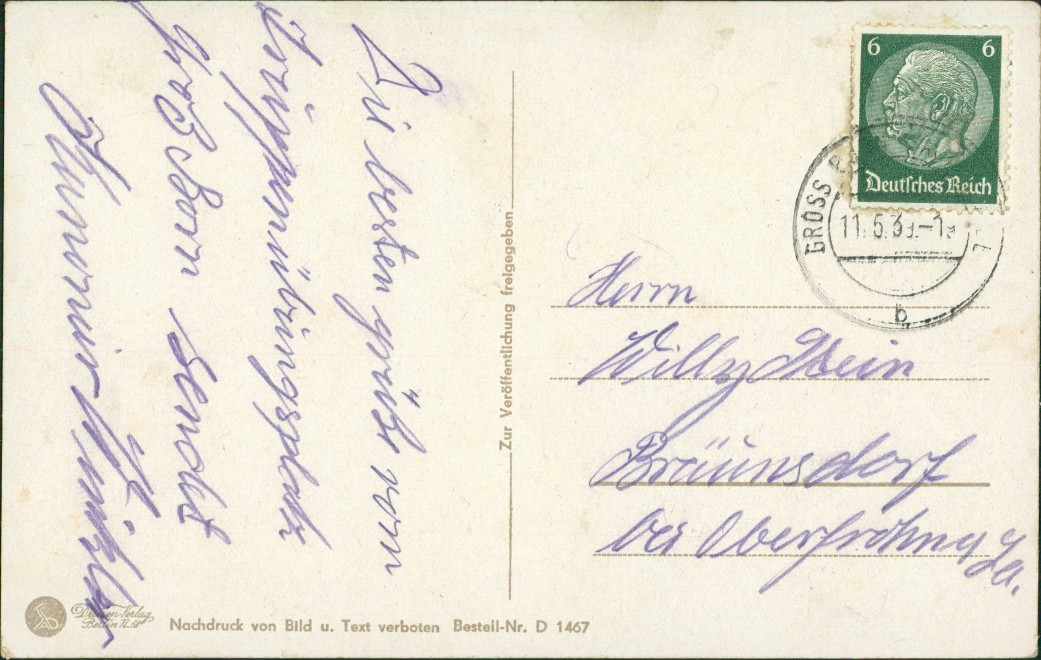 Die besten grüße vom
Truppenübungsplatz
Groß Born sendet
Zur Veröffentlichung freigegeben
6 6
Deutsches Reich
GROSS
11.5.39.-1
b
Herrn
Willy
Bräunsdorf
bei Oberfrohna Sa.
Berlin
Nachdruck von Bild u. Text verboten Bestell-Nr. D 1467